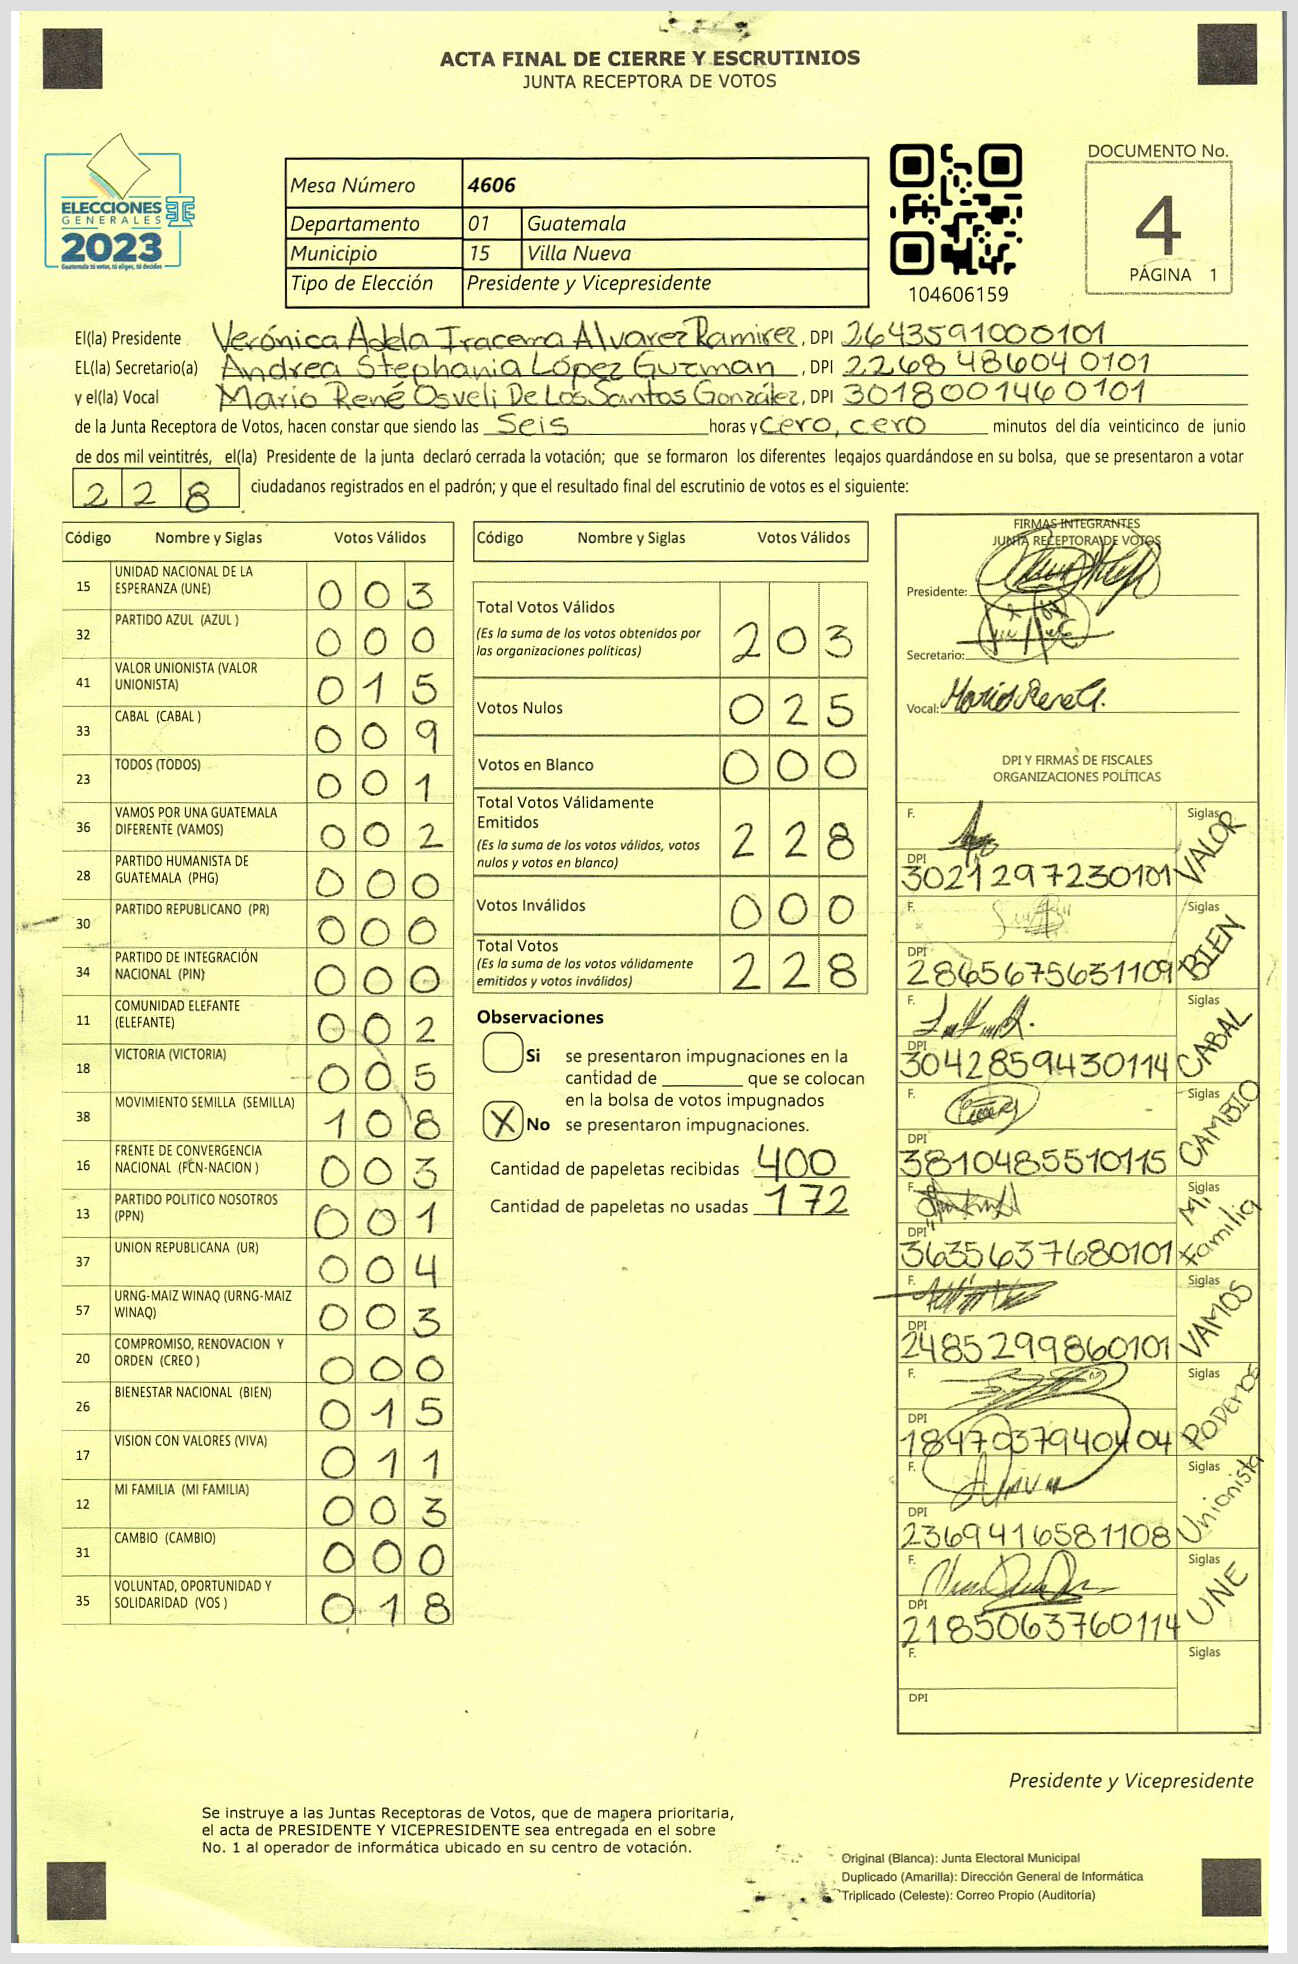 ACTA FINAL DE CIERRE Y ESCRUTINIOS
JUNTA RECEPTORA DE VOTOS
ELECCIONES
GENERALES
2023
Guatemala tú votas, tú eliges, tú decides
Mesa Número 4606
Departamento 01 Guatemala
Municipio 15 Villa Nueva
Tipo de Elección Presidente y Vicepresidente
104606159
DOCUMENTO No.
4
PÁGINA 1
El(la) Presidente Verónica Adela Iracema Alvarez Ramirez, DPI 2643591000101
EL(la) Secretario(a) Andrea Stephania López Guzman, DPI 2268 48604 0101
y el(la) Vocal Mario René Osveli De Los Santos González, DPI 3018001460101
de la Junta Receptora de Votos, hacen constar que siendo las Seis horas y cero, cero minutos del día veinticinco de junio
de dos mil veintitrés, el(la) Presidente de la junta declaró cerrada la votación; que se formaron los diferentes legajos guardándose en su bolsa, que se presentaron a votar
228 ciudadanos registrados en el padrón; y que el resultado final del escrutinio de votos es el siguiente:
Código Nombre y Siglas Votos Válidos
15 UNIDAD NACIONAL DE LA ESPERANZA (UNE) 003
32 PARTIDO AZUL (AZUL ) 000
41 VALOR UNIONISTA (VALOR UNIONISTA) 015
33 CABAL (CABAL ) 009
23 TODOS (TODOS) 001
36 VAMOS POR UNA GUATEMALA DIFERENTE (VAMOS) 002
28 PARTIDO HUMANISTA DE GUATEMALA (PHG) 000
30 PARTIDO REPUBLICANO (PR) 000
34 PARTIDO DE INTEGRACIÓN NACIONAL (PIN) 000
11 COMUNIDAD ELEFANTE (ELEFANTE) 002
18 VICTORIA (VICTORIA) 005
38 MOVIMIENTO SEMILLA (SEMILLA) 108
16 FRENTE DE CONVERGENCIA NACIONAL (FCN-NACION ) 003
13 PARTIDO POLITICO NOSOTROS (PPN) 001
37 UNION REPUBLICANA (UR) 004
57 URNG-MAIZ WINAQ (URNG-MAIZ WINAQ) 003
20 COMPROMISO, RENOVACION Y ORDEN (CREO ) 000
26 BIENESTAR NACIONAL (BIEN) 015
17 VISION CON VALORES (VIVA) 011
12 MI FAMILIA (MI FAMILIA) 003
31 CAMBIO (CAMBIO) 000
35 VOLUNTAD, OPORTUNIDAD Y SOLIDARIDAD (VOS ) 018
Código Nombre y Siglas Votos Válidos
Total Votos Válidos 203
(Es la suma de los votos obtenidos por
las organizaciones políticas)
Votos Nulos 025
Votos en Blanco 000
Total Votos Válidamente
Emitidos 228
(Es la suma de los votos válidos, votos
nulos y votos en blanco)
Votos Inválidos 000
Total Votos 228
(Es la suma de los votos válidamente
emitidos y votos inválidos)
Observaciones
Si se presentaron impugnaciones en la
cantidad de ________ que se colocan
en la bolsa de votos impugnados
X No se presentaron impugnaciones.
Cantidad de papeletas recibidas 400
Cantidad de papeletas no usadas 172
FIRMAS INTEGRANTES
JUNTA RECEPTORA DE VOTOS
Presidente:
Secretario:
Vocal:
DPI Y FIRMAS DE FISCALES
ORGANIZACIONES POLÍTICAS
F. Siglas VALOR
DPI 3021297230101
F. Siglas BIEN
DPI 2865675631109
F. Siglas CABAL
DPI 3042859430114
F. Siglas CAMBIO
DPI 3810485510115
F. Siglas Mi Familia
DPI 3635637680101
F. Siglas VAMOS
DPI 2485299860101
F. Siglas PODEMOS
DPI 1847037940404
F. Siglas Unionista
DPI 2369416581108
F. Siglas UNE
DPI 2185063760114
F. Siglas
DPI
Presidente y Vicepresidente
Se instruye a las Juntas Receptoras de Votos, que de manera prioritaria,
el acta de PRESIDENTE Y VICEPRESIDENTE sea entregada en el sobre
No. 1 al operador de informática ubicado en su centro de votación.
Original (Blanca): Junta Electoral Municipal
Duplicado (Amarilla): Dirección General de Informática
Triplicado (Celeste): Correo Propio (Auditoría)